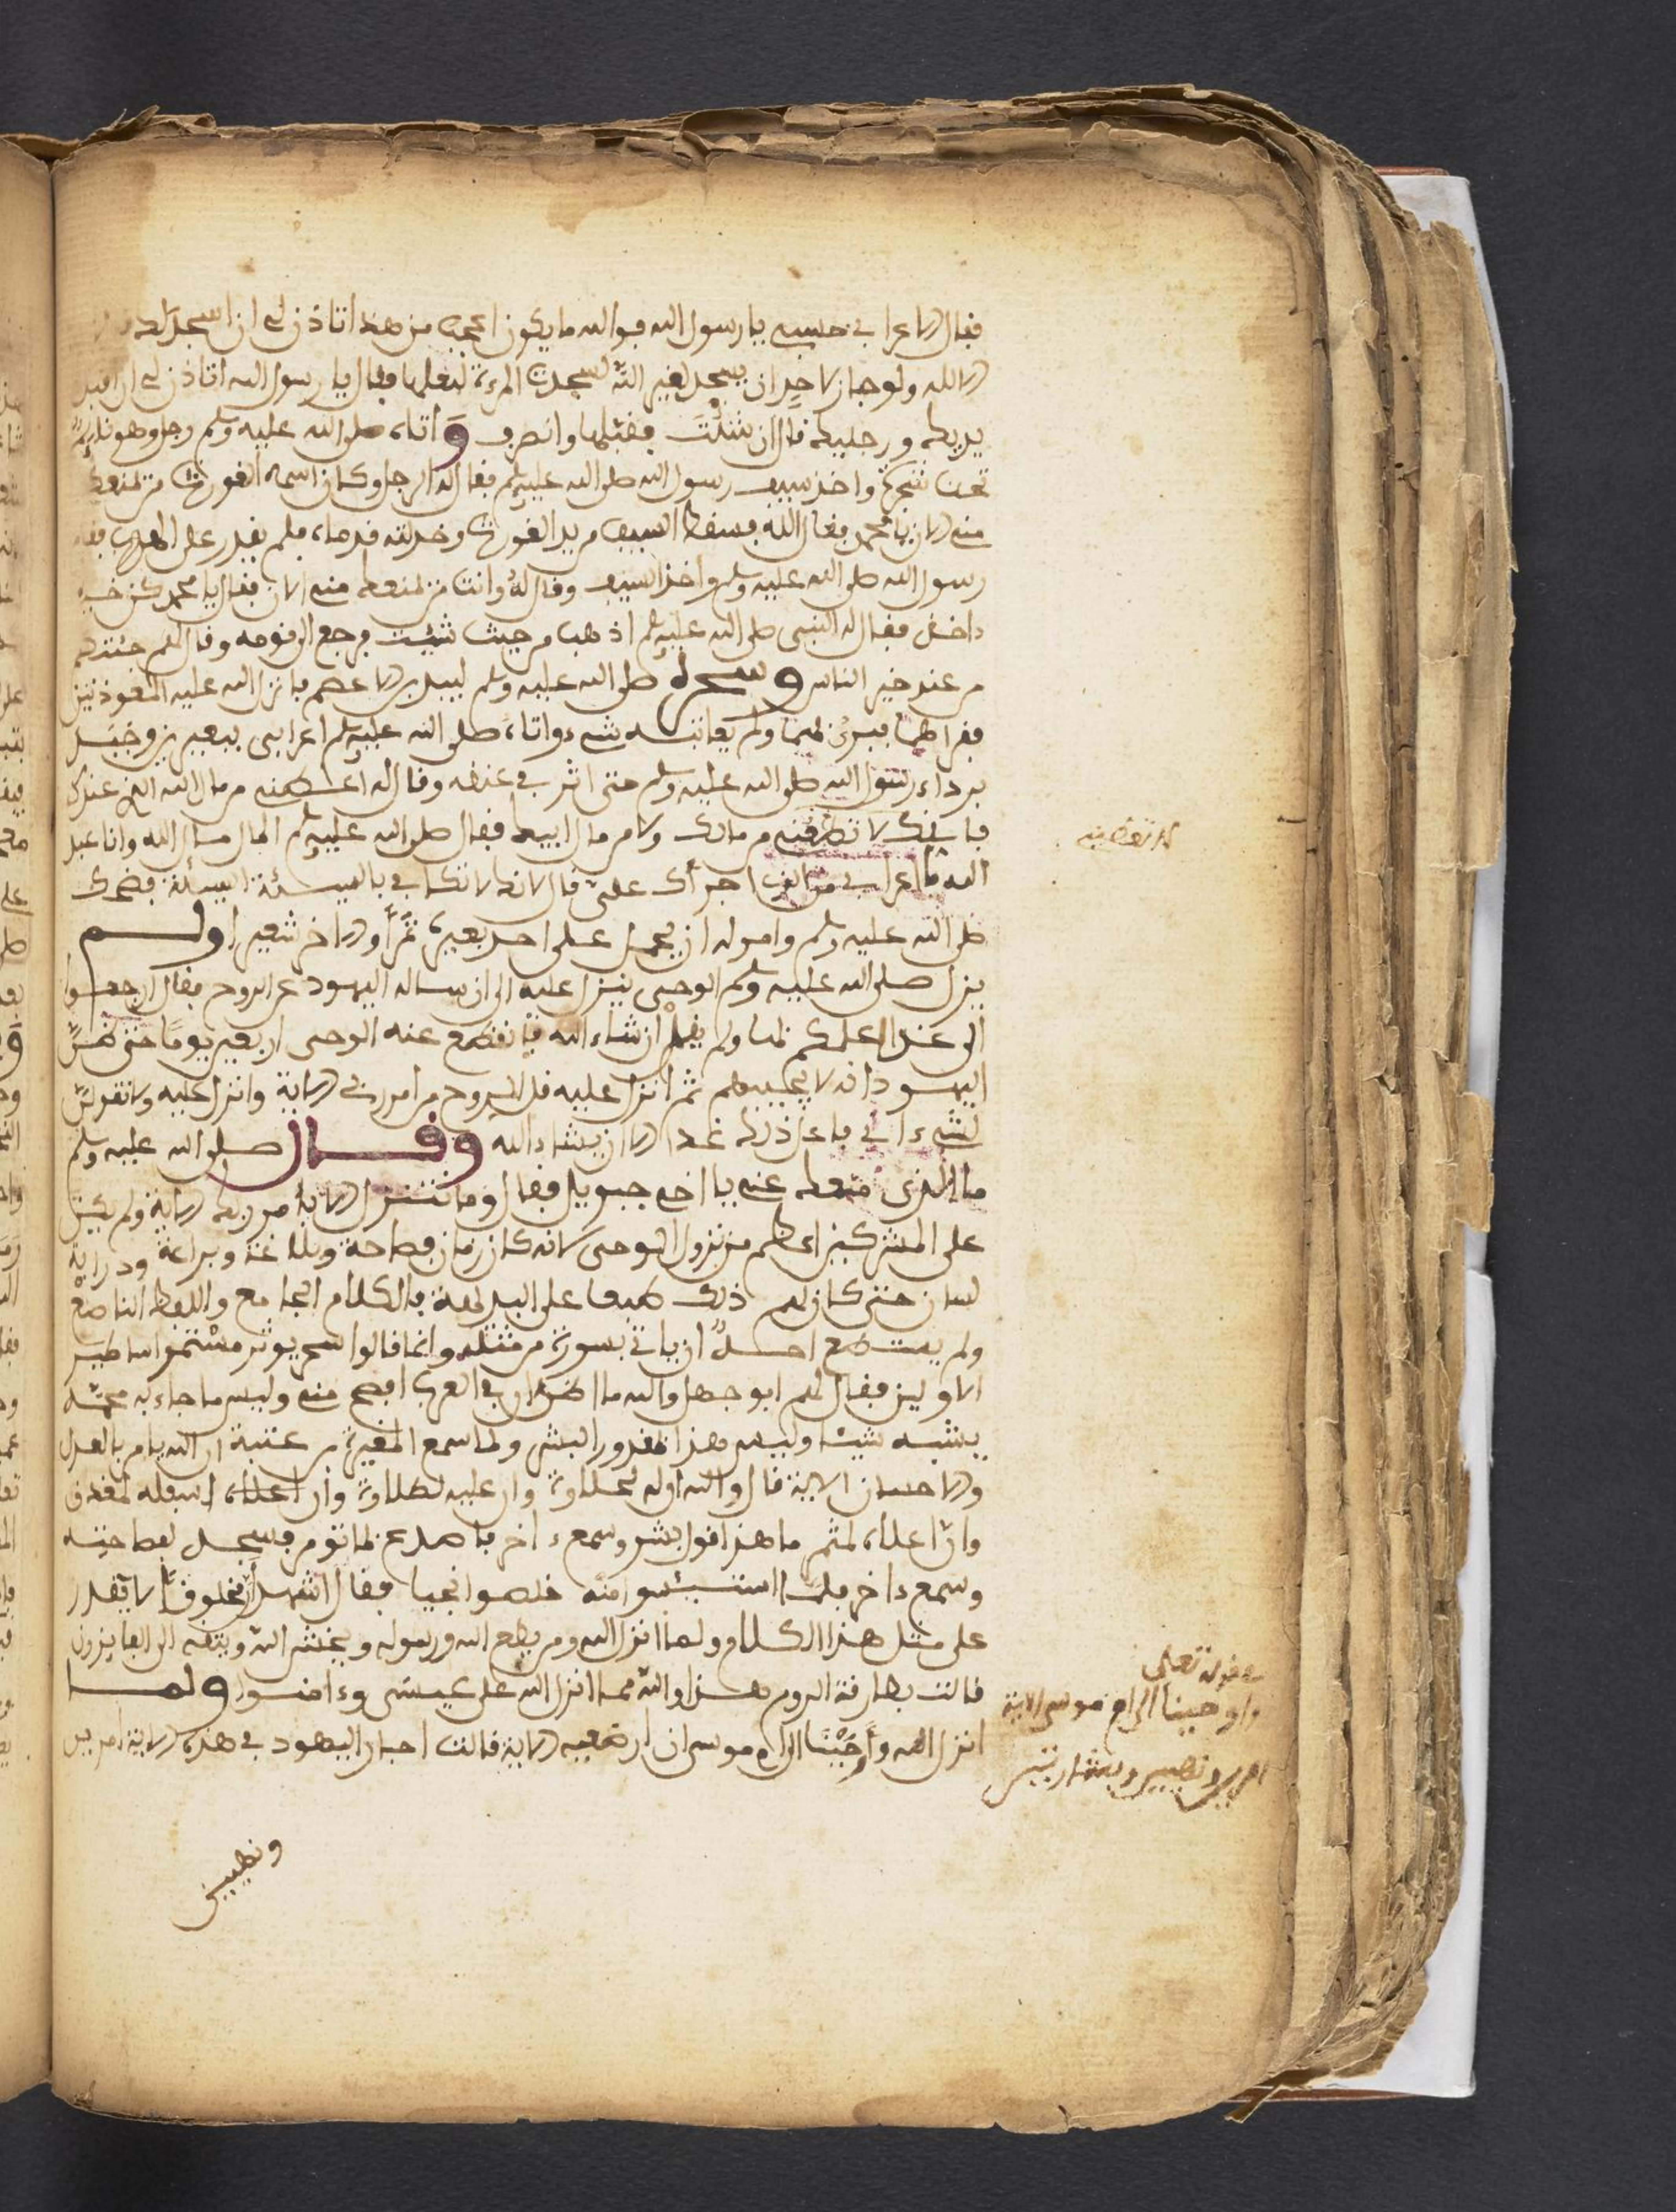 فقال الاعرابي حسبي يا رسول الله فوالله ما يكون اعجب من هذا اتاذن لي ان اسجد لك
الا لله ولو جاز لاحد ان يسجد لغير الله لسجدت المرءة لبعلها فقال يا رسول الله اتاذن لي ان اقبل
يديك ورجليك قال ان شئت فقبلها وانصرف وَاتاه صلى الله عليه وسلم رجل وهو نايم
تحت شجرة واخذ سيف رسول الله صلى الله عليه وسلم فقال له الرجل وكان اسمه الغورث من لمنعك
مني الان يا محمد فقال الله فسقط السيف من يد الغورث وخدلته قدماه فلم يقدر على الهرب فقام
رسول الله صلى الله عليه وسلم واخذ السيف وقال له وانت من لمنعك مني الان فقال يا محمد كن خير
ءاخذ فقال له النبي صلى الله عليه وسلم اذهب من حيث شيت فرجع الى قومه وقال لهم جئتكم
من عند خير الناس وسحره صلى الله عليه وسلم لبيد بن الاعصم فانزل الله عليه المعوذتين
فقراهما فبرئ لهما ولم يعاتبه بشيء واتاه صلى الله عليه وسلم اعرابي ببعيرين وجبذ
برداء رسول الله صلى الله عليه وسلم حتى اثر في عنقه وقال له اعطني من مال الله الذي عندك
فانك لا تعطني من مالك ولا من مال ابيك فقال صلى الله عليه وسلم المال مال الله وانا عبد
الله يا اعرابي من الذي اجراك علي قال لانك لا تكافي بالسيئة السيئة فضحك
صلى الله عليه وسلم وامر له ان يحمل على احد بعيريه تمرًا والاخر شعيرا ولم
يزل صلى الله عليه وسلم الوحي ينزل عليه الى ان ساله اليهود عن الروح فقال ارجعوا
الى غدا اعلمكم بها ولم يقل ان شاء الله فانقطع عنه الوحي اربعين يومًا حتى ظن
اليهود انه لا يجيبهم ثم انزل عليه قل الروح من امر ربي الاية وانزل عليه ولا تقولن
لشيء اني فاعل ذلك غدا الا ان يشاء الله وقال صلى الله عليه وسلم
ما الذي منعك عني يا اخي جبريل فقال وما نتنزل الا بامر ربك الاية ولم يكن
على المشركين اعظم من نزول الوحي لانه كان زمان فصاحة وبلاغة وبراعة ودراية
لسان حتى كان لهم ذلك طبعا على البديهة بالكلام الجامع واللفظ الناصع
ولم يستطع احدٌ ان ياتي بسورة من مثله وانما قالوا سحر يوثر مستمر اساطير
الاولين فقال لهم ابو جهل والله ما اظن ان في العرب افصح مني وليس ما جاء به محمد
يشبه شيئا وليس هذا مقدور البشر ولما سمع المغيرة بن عتبة ان الله يامر بالعدل
والاحسان الاية قال والله ان له لحلاوة وان عليه لطلاوة وان اسفله لمغدق
وان اعلاه لمثمر ما هذا قول بشر وسمع ءاخر فاصدع بما تومر فسجد لفصاحته
وسمع ءاخر فلما استيئسوا منه خلصوا نجيا فقال اشهد ان مخلوقًا لا يقدر
على مثل هذا الكلام ولما انزل الله ومن يطع الله ورسوله ويخش الله ويتقه الى الفايزون
قالت بطارقة الروم هذا والله مما انزل الله على عيسى وءامنوا ولما
انزل الله وأوحينا الى ام موسى ان ارضعيه الاية قالت احبار اليهود في هذه الاية امرين
ونهيين
لا تعطني
قوله تعلى
واوحينا الى ام موسى الاية
امرين ونهيين وبشارتين